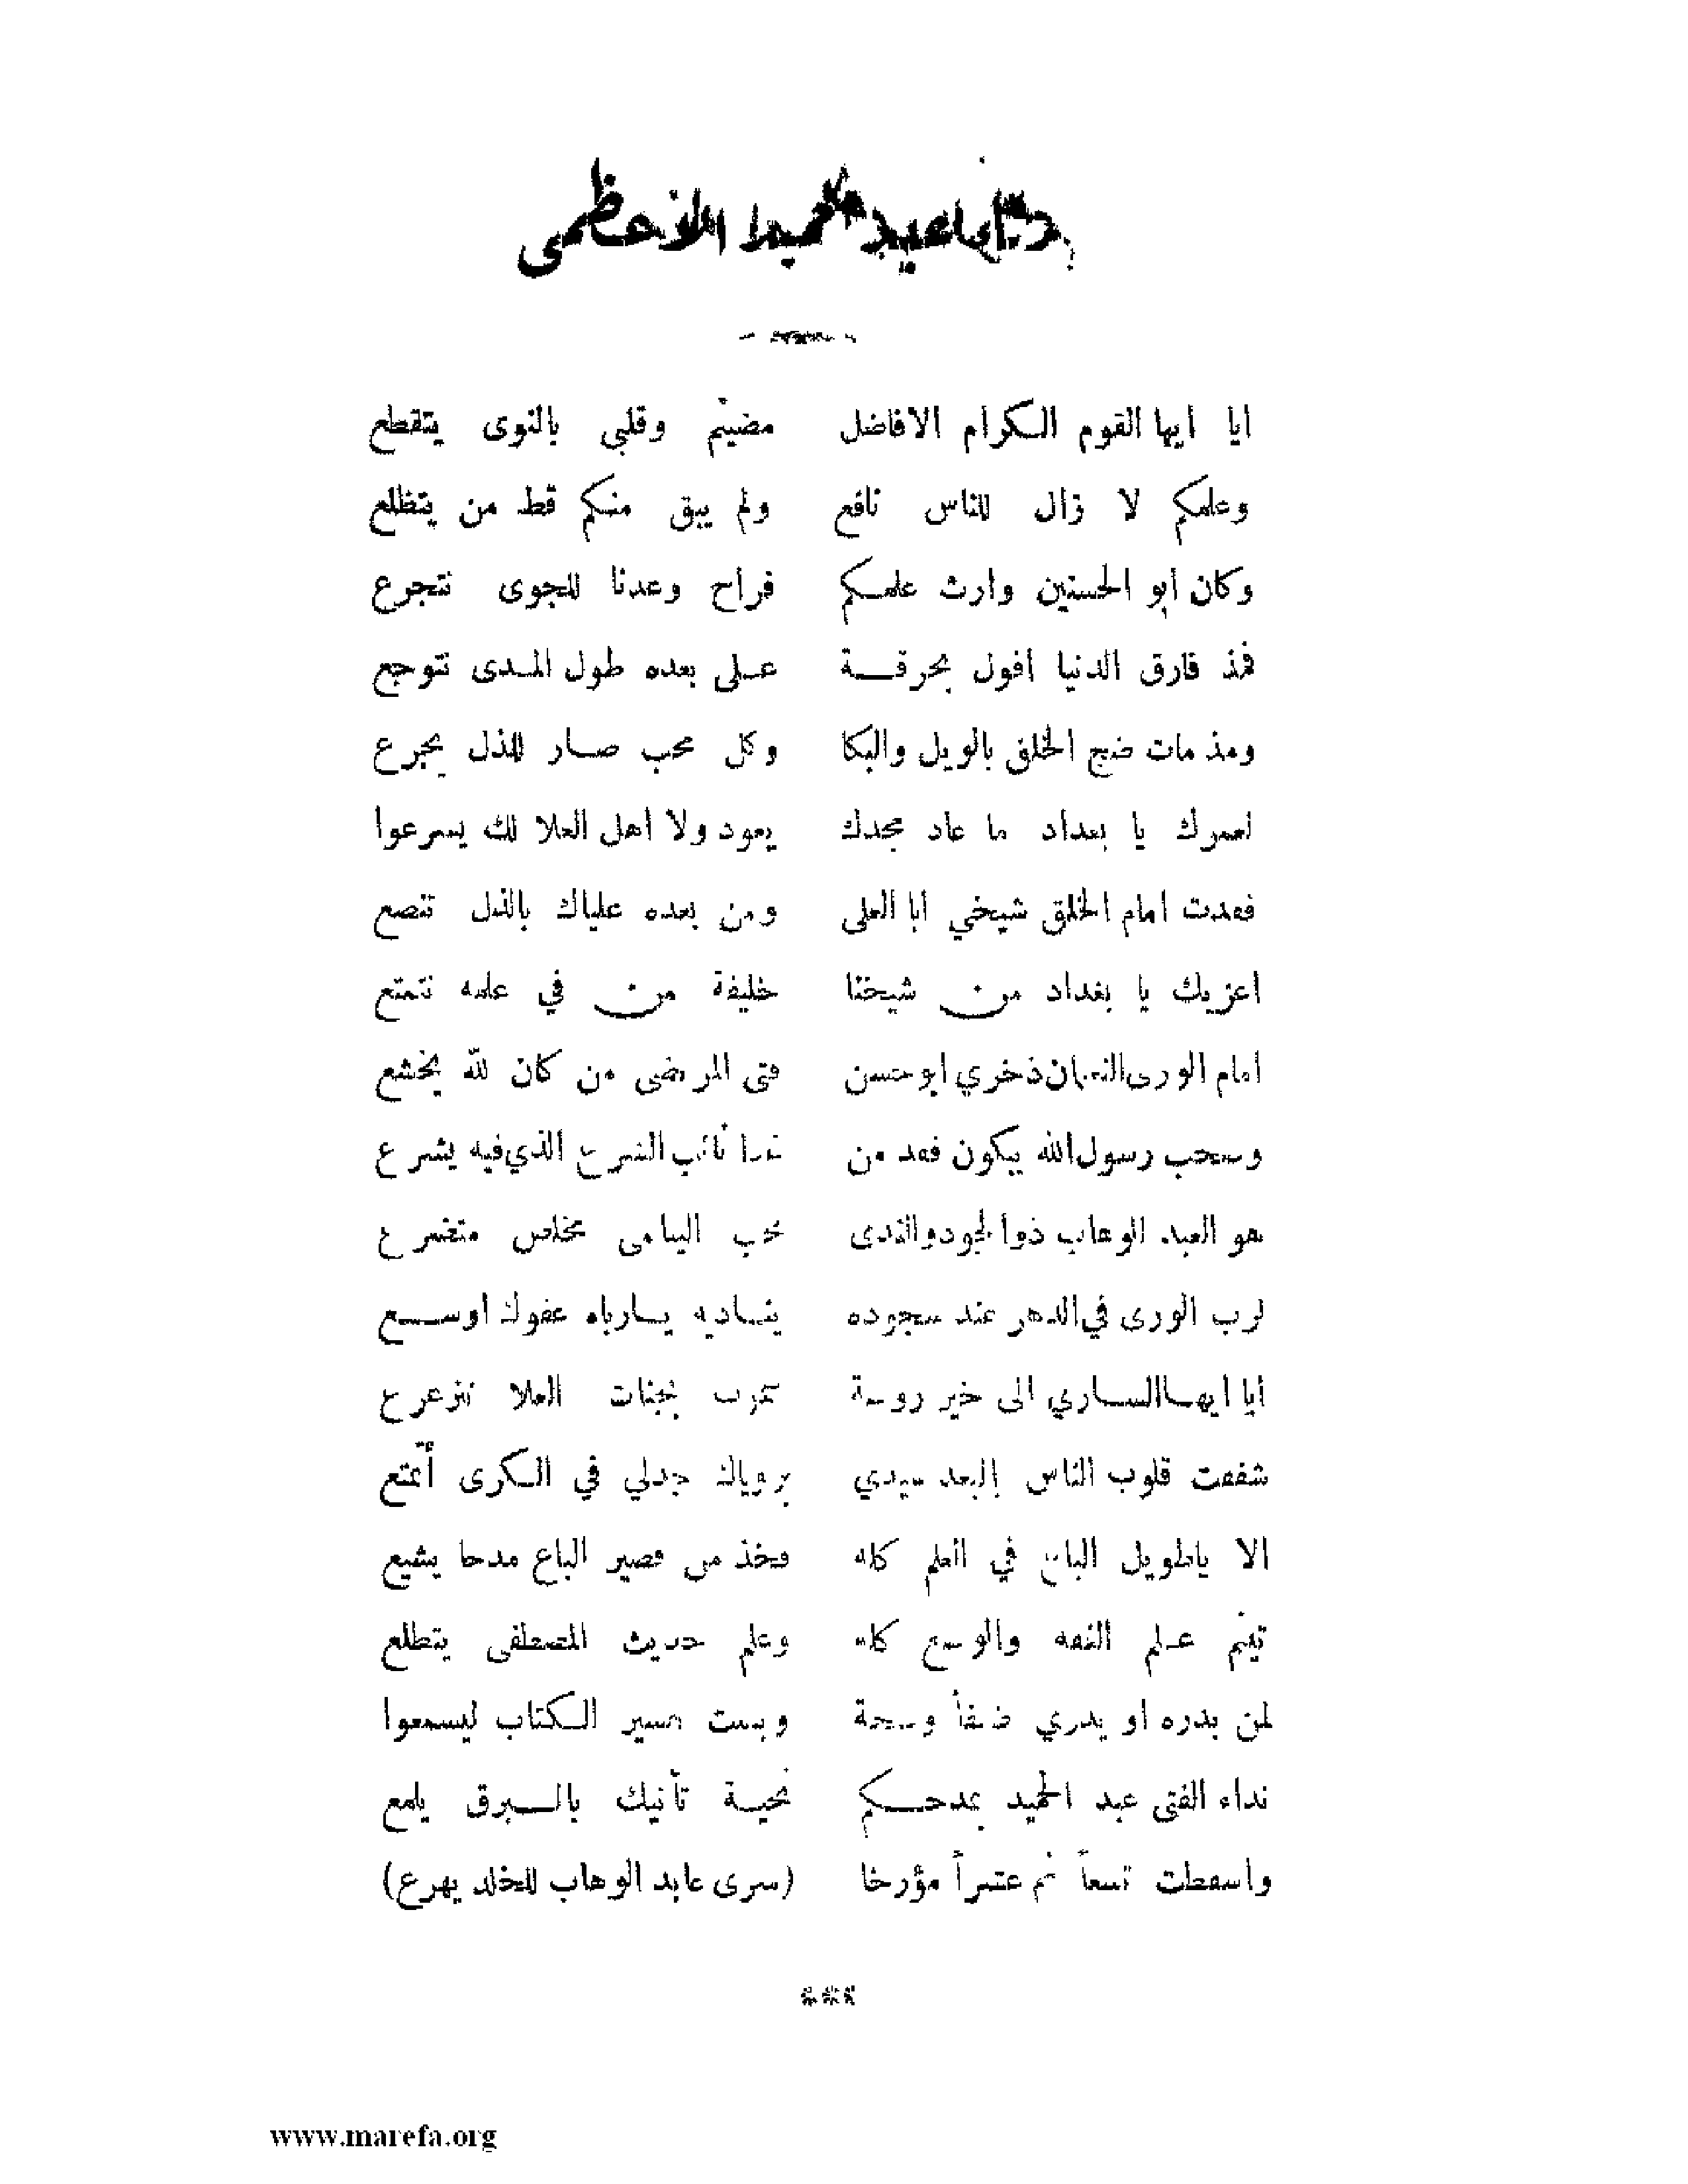 عبد الحميد الاعظمي
ايا ايها القوم الكرام الافاضل مضيتم وقلبي بالنوى يتقطع
وعلمكم لا زال للناس نافع ولم يبق منكم قط من يتظلع
وكان ابو الحسنين وارث علمكم فراح وعدنا للجوى نتجرع
فمذ فارق الدنيا اقول بحرقة على بعده طول المدى نتوجع
ومذ مات ضج الخلق بالويل والبكا وكل محب صار للذل يجرع
لعمرك يا بغداد ما عاد مجدك يعود ولا اهل العلا لك يسرعوا
فقدت امام الخلق شيخي ابا العلى ومن بعده علياك بالذل تنصع
اعزيك يا بغداد من شيخنا خليفة من في علمه نتمتع
امام الورى النعمان ذخري ابو حسن فتى المرتضى من كان لله يخشع
وصحب رسول الله يبكون فقد من غدا نائب الشرع الذي فيه يشرع
هو العبد الوهاب ذو الجود والندى محب اليتامى مخلص متضرع
لرب الورى في الدهر عند سجوده يناديه يارباه عفوك اوسع
ايا ايها الساري الى خير روضة بجنات العلا تترعرع
شغفت قلوب الناس بالبعد سيدي برؤياك جدلي في الكرى أتمتع
الا ياطويل الباع في العلم كله فخذ من قصير الباع مدحا يشيع
علم الفقه كله وعلم حديث المصطفى يتطلع
لمن بدره او يدري الكتاب ليسمعوا
نداء الفتى عبد الحميد بمدحكم تحية تأتيك بالبرق يلمع
واسقطت تسعاً ثم عشراً مؤرخا (سرى عابد الوهاب للخلد يهرع)
***
www.marefa.org